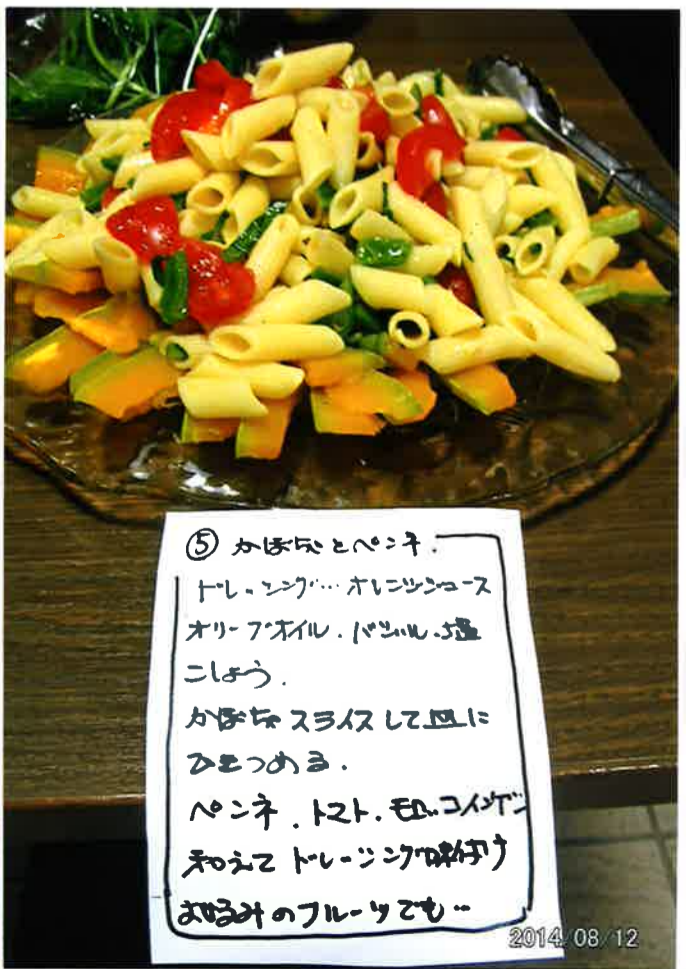 ⑤ かぼちゃとペンネ
ドレッシング…オレンジジュース
オリーブオイル、バジル、塩
こしょう、
かぼちゃスライスして皿に
ひきつめる。
ペンネ、トマト、モロッコインゲン
和えてドレーシング味付け
お好みのフルーツでも…
2014/08/12